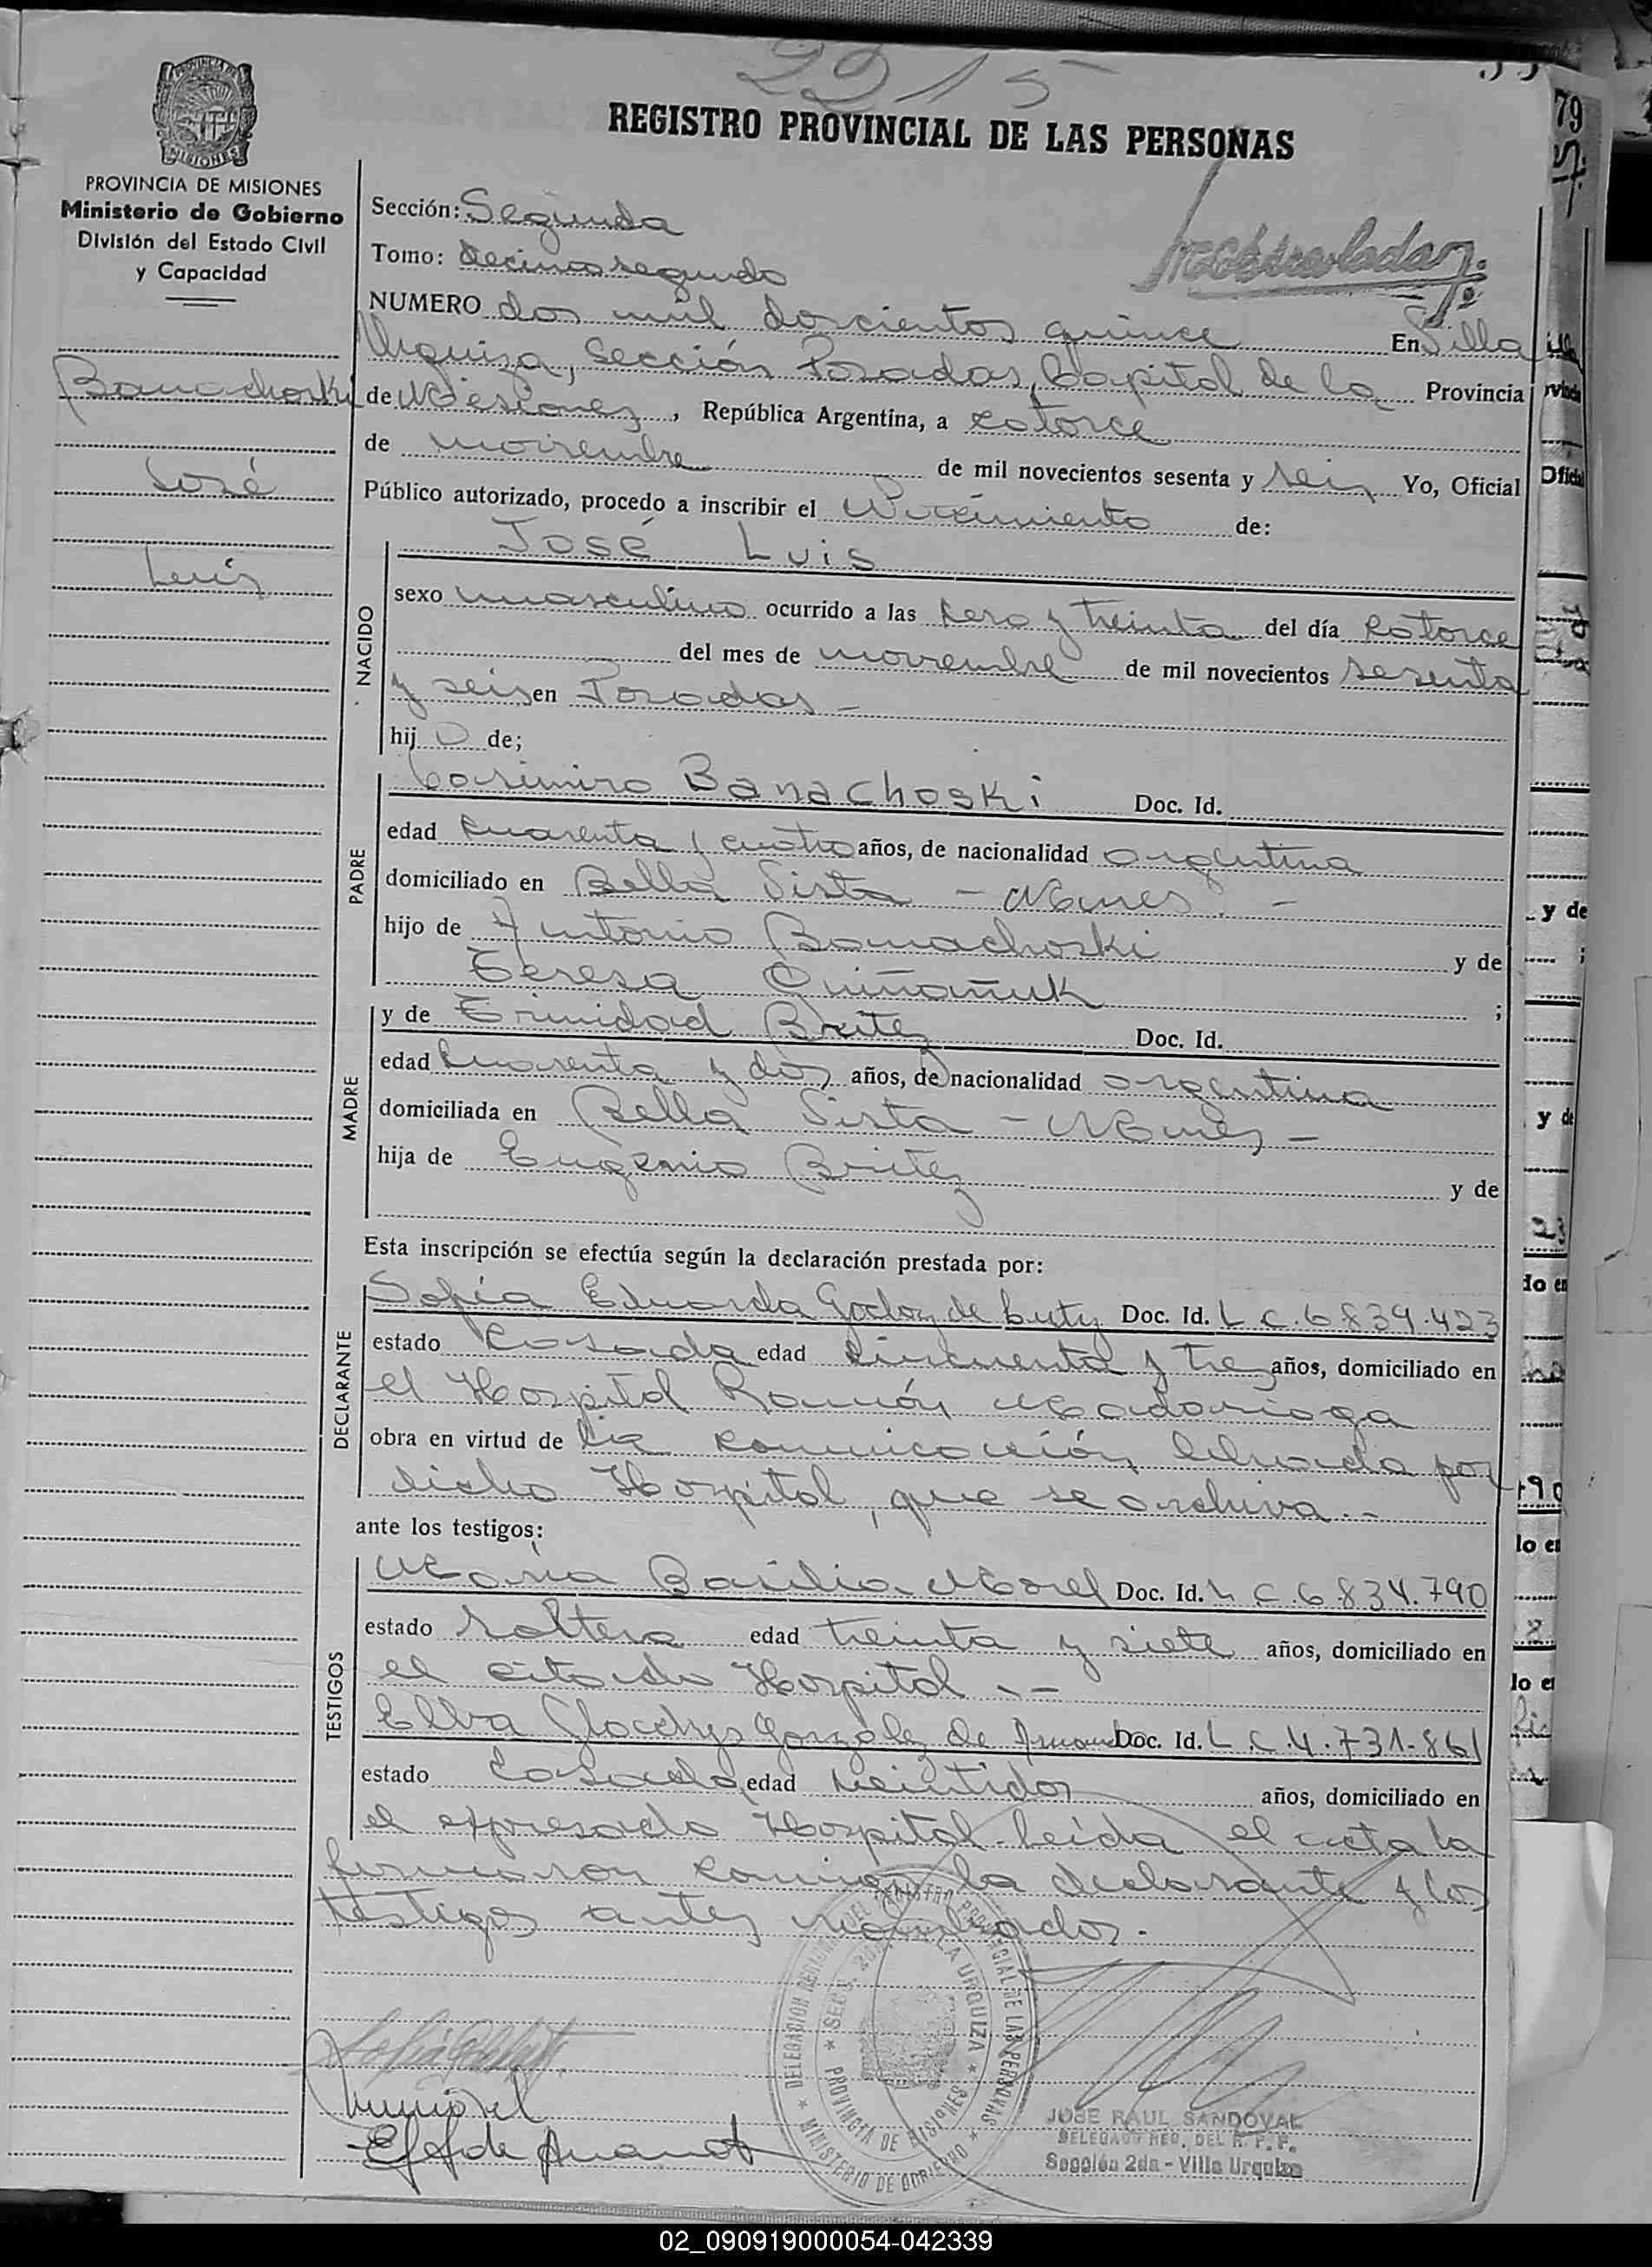 2215
79
REGISTRO PROVINCIAL DE LAS PERSONAS
MISIONES
PROVINCIA DE MISIONES
Ministerio de Gobierno
División del Estado Civil
y Capacidad
Banachoski
José
Luis
Sección: Segunda
Tomo: Decimosegundo
NUMERO dos mil doscientos quince En Villa
Urquiza, Sección Posadas, Capital de la Provincia
de Misiones, República Argentina, a catorce
de noviembre de mil novecientos sesenta y seis Yo, Oficial
Público autorizado, procedo a inscribir el Nacimiento de:
NACIDO
José Luis
sexo masculino ocurrido a las cero y treinta del día catorce
del mes de noviembre de mil novecientos sesenta
y seis en Posadas -
hijo de;
PADRE
Casimiro Banachoski Doc. Id.
edad cuarenta y cuatro años, de nacionalidad argentina
domiciliado en Bella Vista - Mnes. -
hijo de Antonio Banachoski y de
Teresa ;
MADRE
y de Trinidad Britez Doc. Id.
edad cuarenta y dos años, de nacionalidad argentina
domiciliada en Bella Vista - Mnes -
hija de Eugenio Britez y de
Esta inscripción se efectúa según la declaración prestada por:
DECLARANTE
Sofía Eduarda Godoy de Doc. Id. L C. 6839.423
estado casada edad cincuenta y tres años, domiciliado en
el Hospital Ramón Madariaga
obra en virtud de la comunicación librada por
dicho Hospital, que se archiva.-
ante los testigos:
TESTIGOS
María Basilia Morel Doc. Id. L C 6.834.790
estado soltera edad treinta y siete años, domiciliado en
el citado Hospital.-
Elba Gladys González de Doc. Id. L.C.4.731.861
estado casada edad veintidos años, domiciliado en
el expresado Hospital. Leída el acta la
firmaron conmigo la declarante y los
testigos antes nombrados.
DELEGACION DEL REGISTRO PROVINCIAL DE LAS PERSONAS
MINISTERIO DE GOBIERNO
PROVINCIA DE MISIONES
JOSE RAUL SANDOVAL
DELEGADO REG. DEL R. P. P.
Sección 2da - Villa Urquiza
02_090919000054-042339